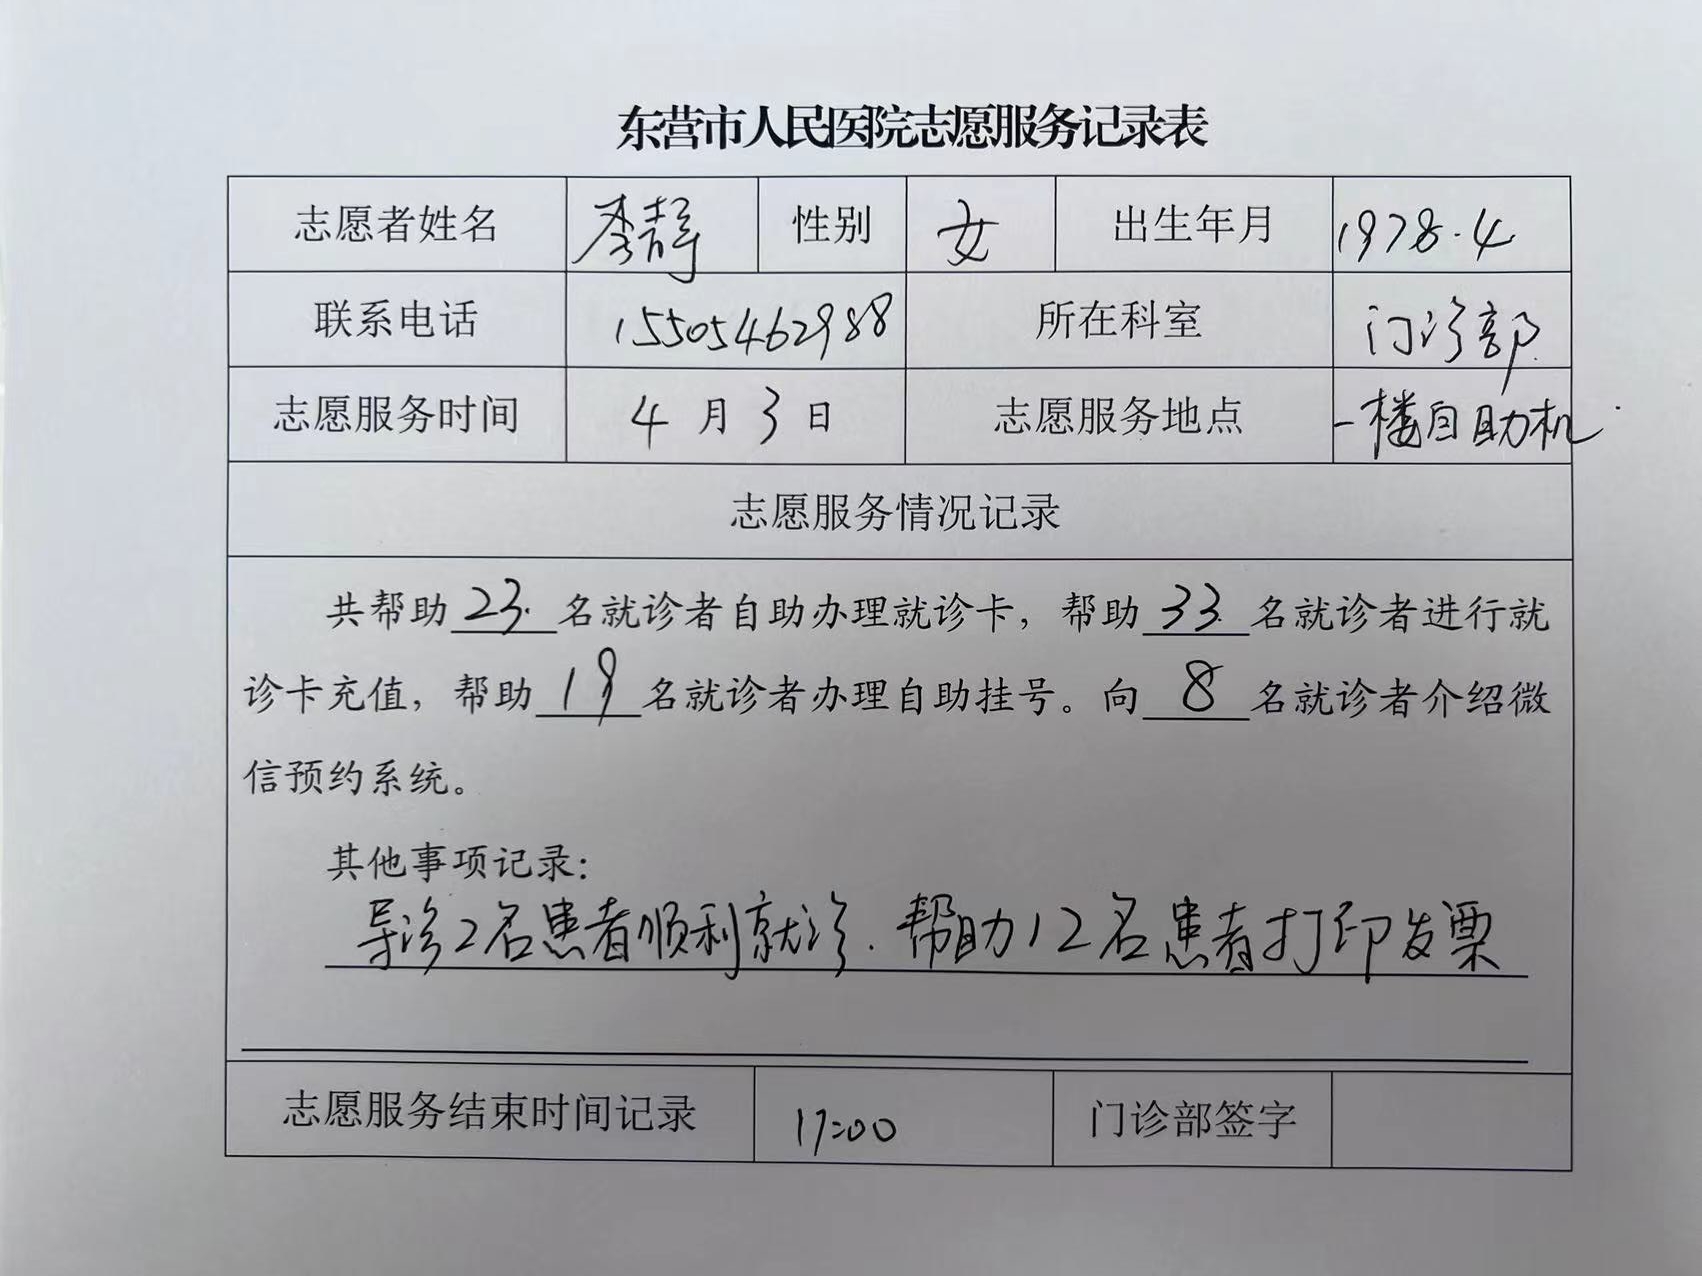 东营市人民医院志愿服务记录表
志愿者姓名 李静 性别 女 出生年月 1978.4
联系电话 15505462988 所在科室 门诊部
志愿服务时间 4月3日 志愿服务地点 一楼自助机
志愿服务情况记录
共帮助23.名就诊者自助办理就诊卡，帮助33名就诊者进行就
诊卡充值，帮助19名就诊者办理自助挂号。向8名就诊者介绍微
信预约系统。
其他事项记录：
导诊2名患者顺利就诊.帮助12名患者打印发票
志愿服务结束时间记录 17:00 门诊部签字